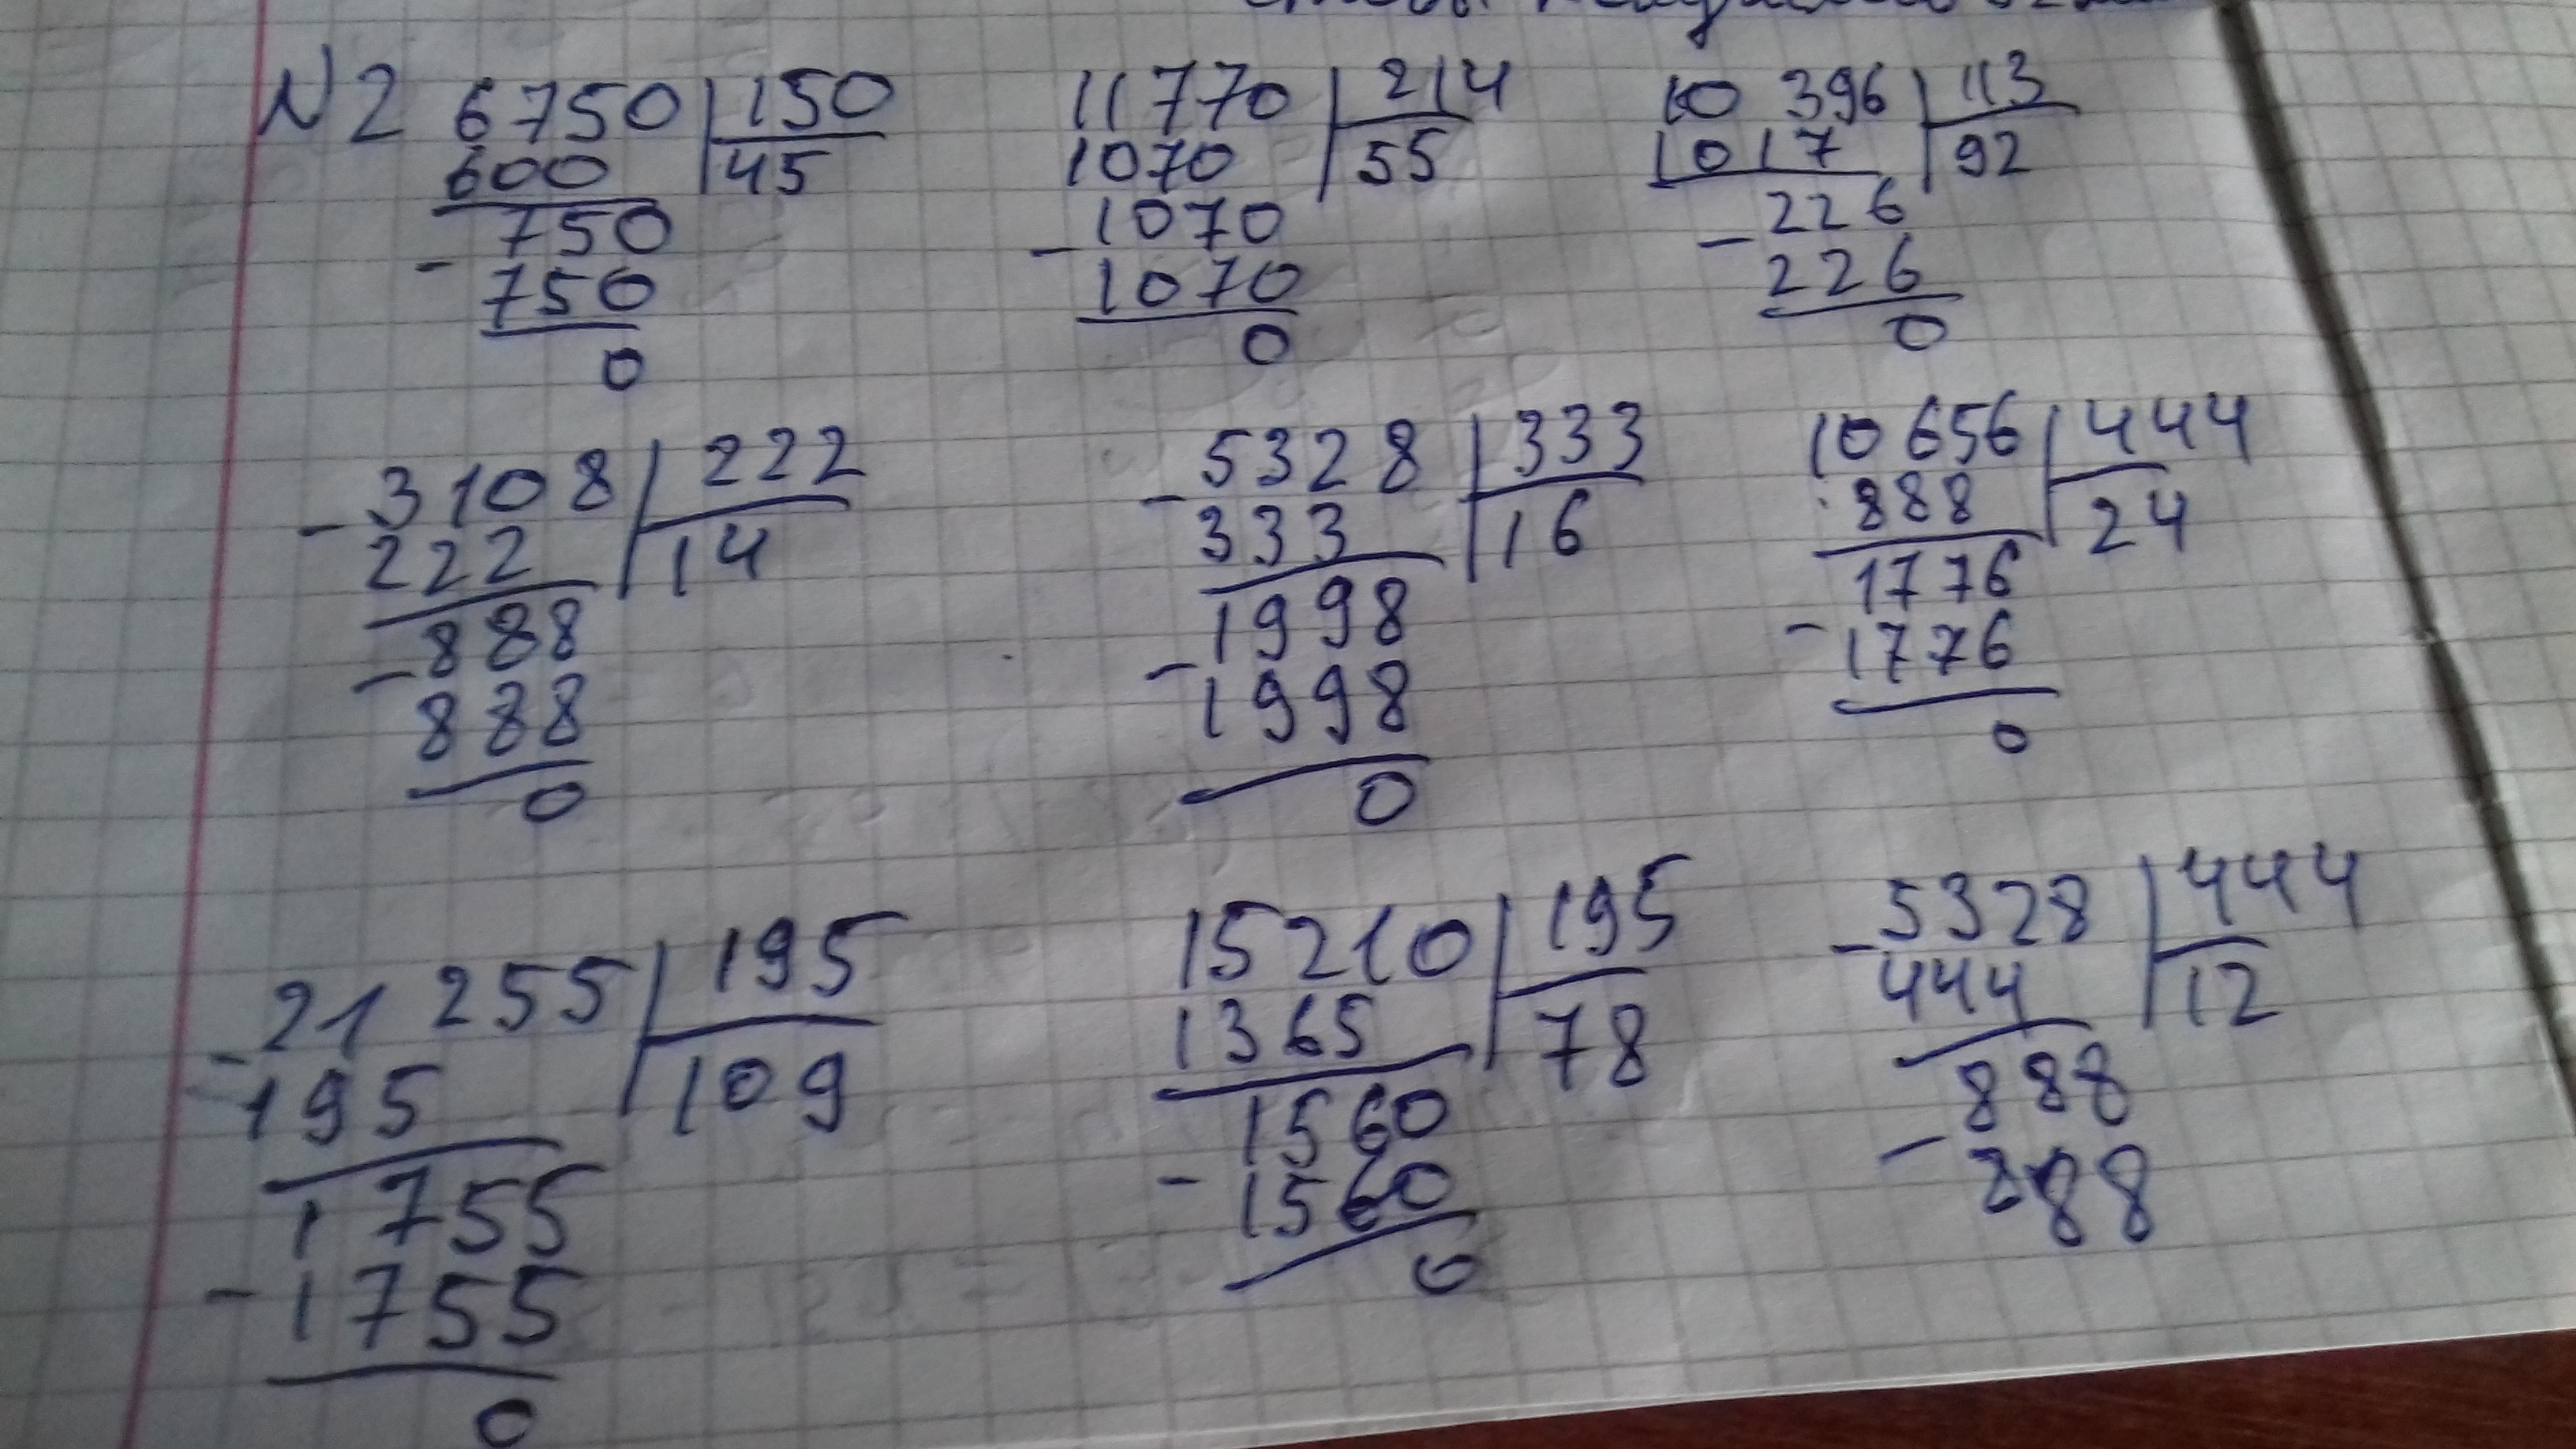 N2 6750 150 11770 214 10 396 113
600 45 1070 55 1017 92
750 1070 226
- 750 - 1070 - 226
0 0 0
- 3108 222 - 5328 333 10 656 444
222 14 333 16 888 24
888 1998 1776
- 888 - 1998 - 1776
0 0 0
- 21 255 195 15210 195 - 5328 444
195 109 1365 78 444 12
1755 1560 888
- 1755 - 1560 - 888
0 0